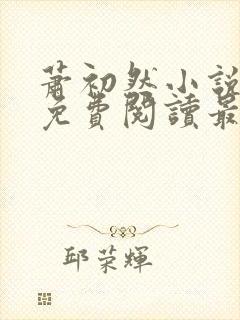 蕭初然小說
免費閱讀最
邱榮輝